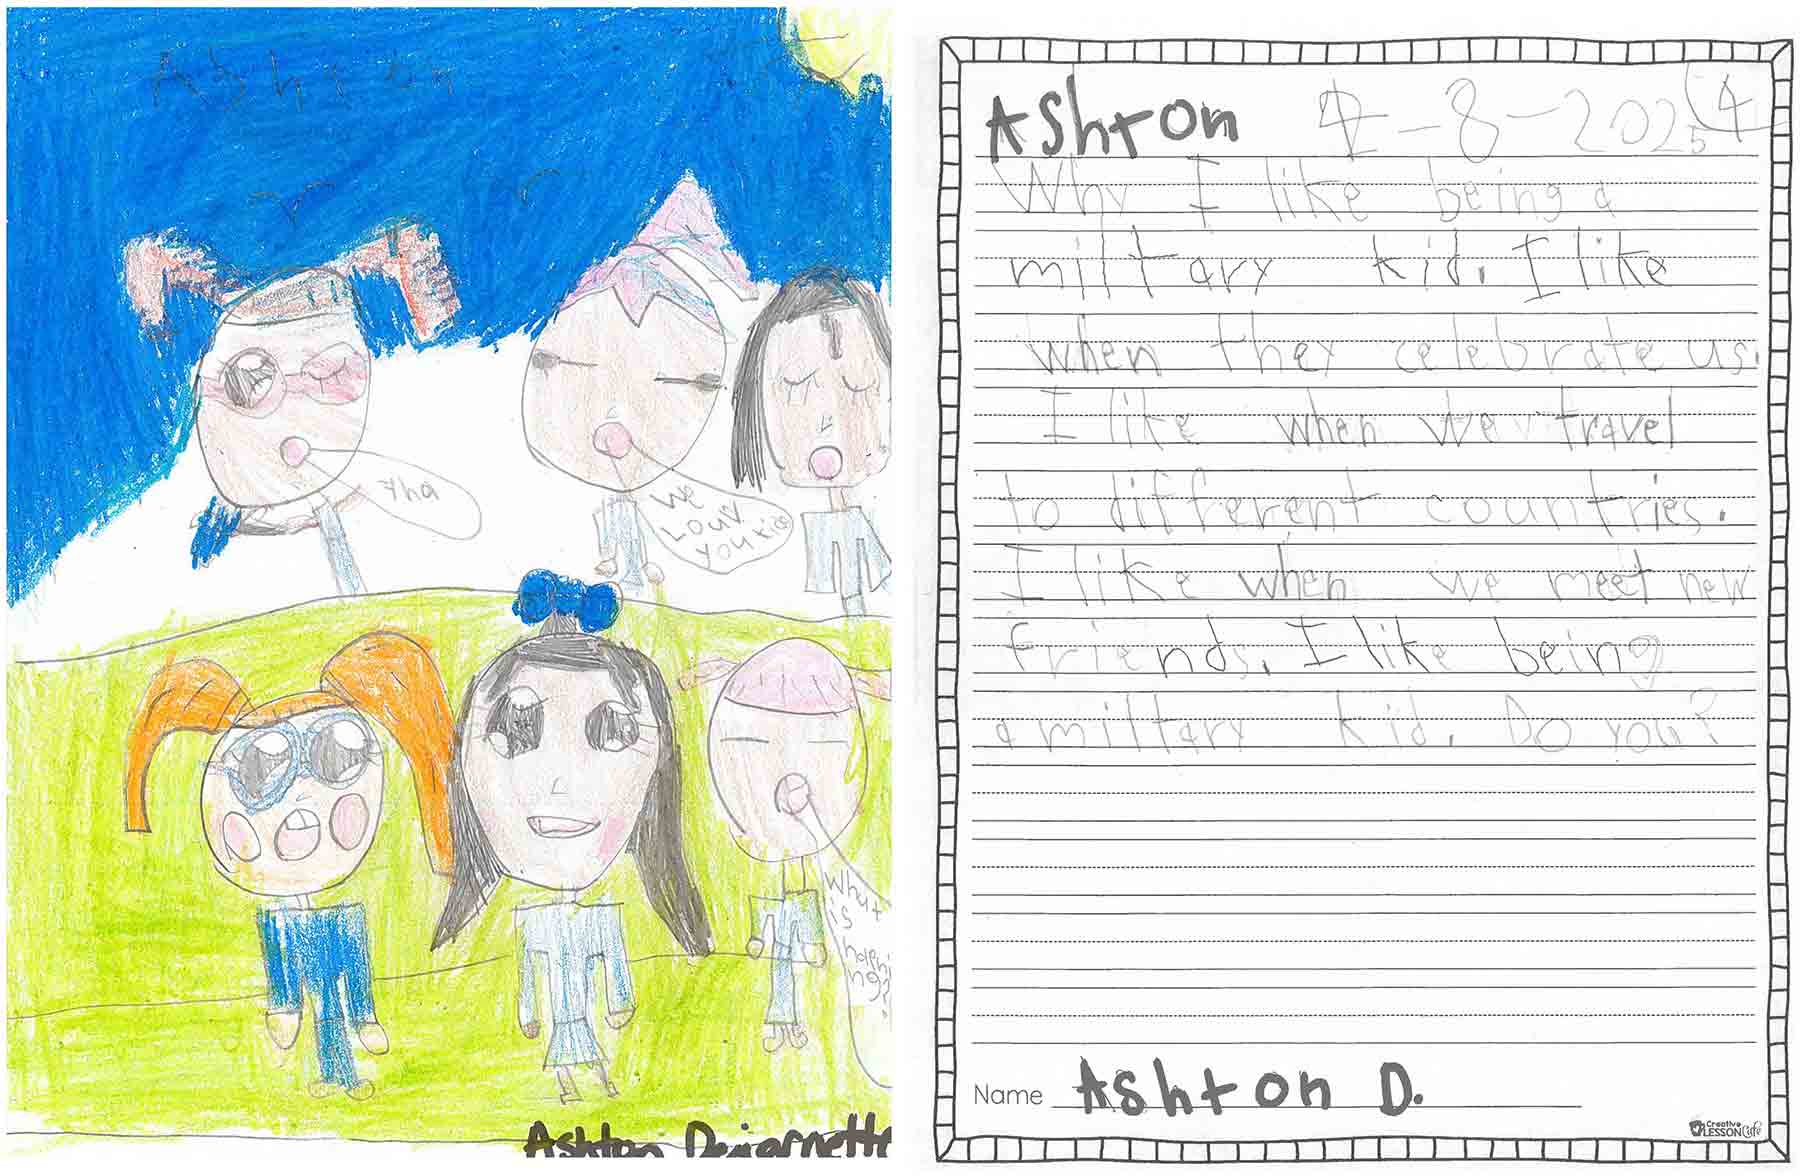 Ashton
yha
We
Louv
you kids
What
is
happni
ng?
Ashton Dejarnette
Ashton 4-8-2025
Why I like being a
military kid. I like
when they celebrate us.
I like when we travel
to different countries.
I like when we meet new
friends. I like being
a military kid. Do you?
Name Ashton D.
Creative
LESSON Cafe